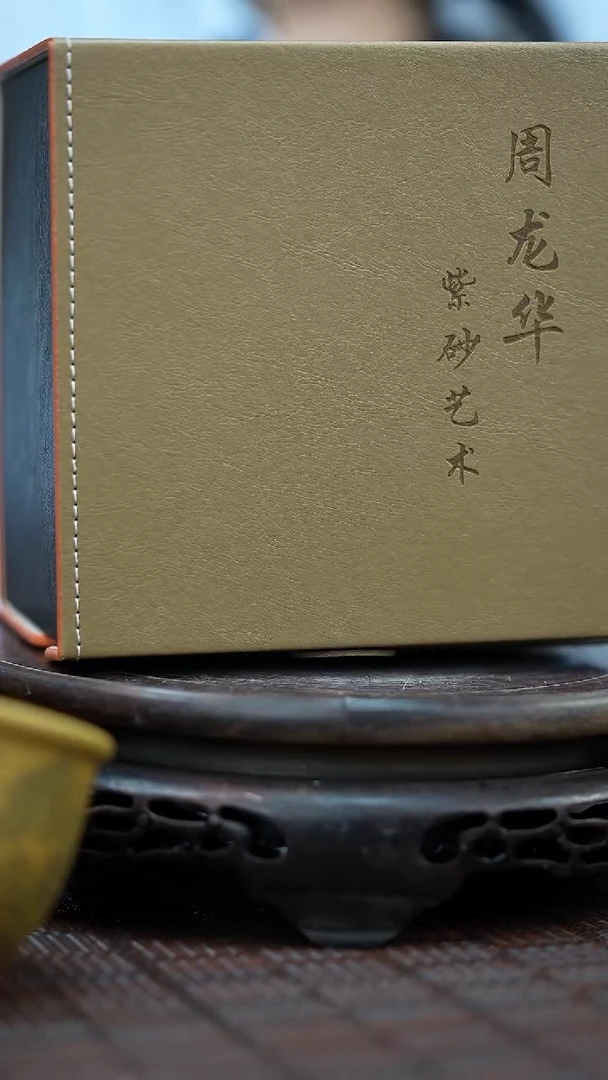 周龙华
紫砂艺术